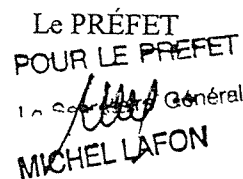 Le PRÉFET
POUR LE PREFET
Le Secrétaire Général
MICHEL LAFON